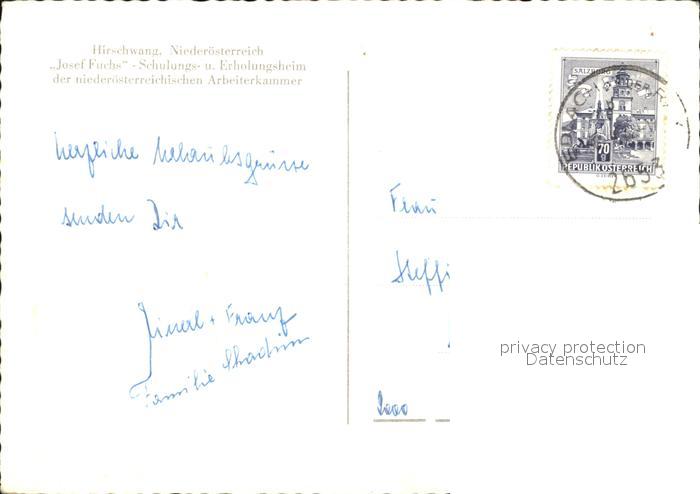 Hirschwang, Niederösterreich
„Josef Fuchs“ - Schulungs- u. Erholungsheim
der niederösterreichischen Arbeiterkammer
SALZBURG
70
REPUBLIK ÖSTERREICH
herzliche Urlaubsgrüsse
senden Dir
+ Franz
Familie
Frau
Steffi
privacy protection
Datenschutz